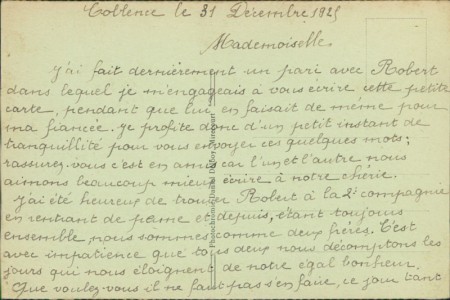 Coblence le 31 Décembre 1925
Mademoiselle.
J'ai fait dernièrement un pari avec Robert
dans lequel je m'engageais à vous écrire cette petite
carte, pendant que lui en faisait de même pour
ma fiancée. Je profite donc d'un petit instant de
tranquillité pour vous envoyer ces quelques mots;
rassurez-vous c'est en ami car l'un et l'autre nous
aimons beaucoup mieux écrire à notre chérie.
J'ai été heureux de trouver Robert à la 2e compagnie
en rentrant de perme et depuis, étant toujours
ensemble, nous sommes comme deux frères. C'est
avec impatience que tous deux nous décomptons les
jours qui nous éloignent de notre égal bonheur.
Que voulez-vous il ne faut pas s'en faire, ce jour tant